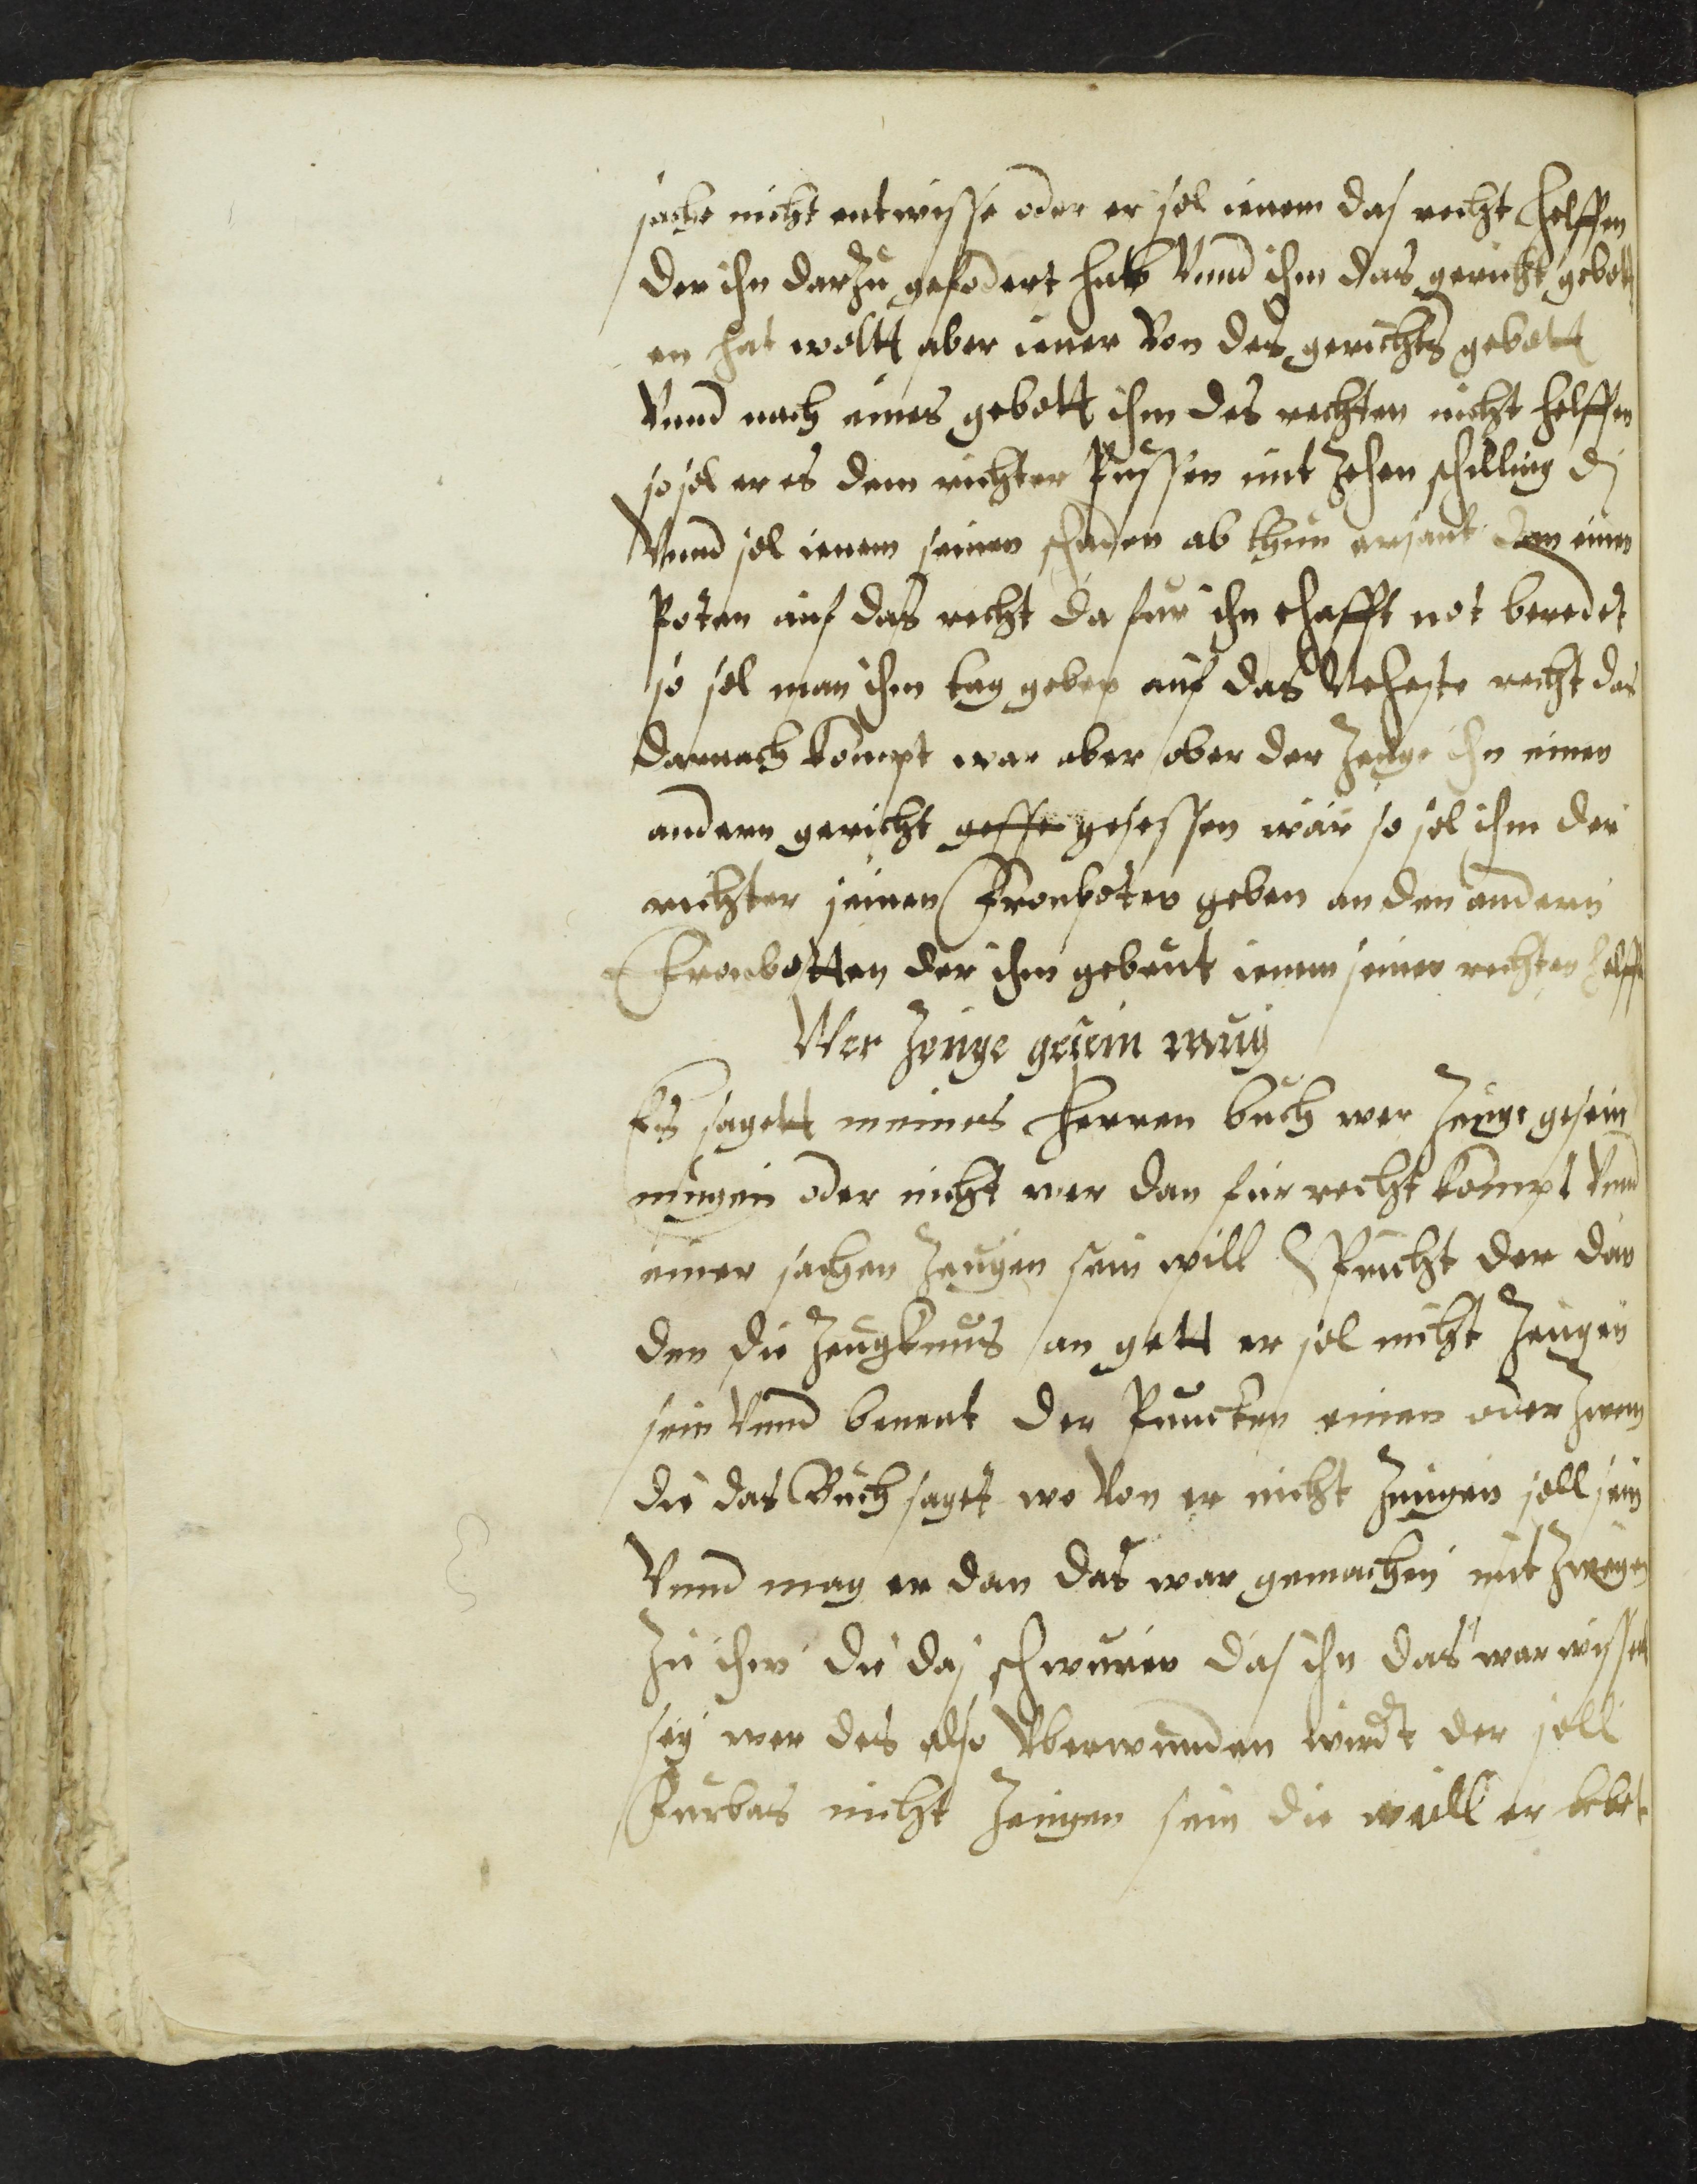 sache nicht entwisse oder er sol ienem das recht helffen
der ihn darzu gefodert hab vnnd ihm das gericht gebott
en hat woltt aber iener von des gerichts gebott
vnnd nach eines gebott ihm des rechten nicht helffen
so sol er es dem richter Pussen mit Zehen schilling d
vnnd sol ienem seinen schaden ab thun ersant dan einen
Poten auf das recht da fur ihn ehafft not beredt
so sol man ihm tag geben auf das Neheste recht das
darnach kompt war aber ober der Zeuge ihn einen
andern gericht gesse gesessen wär so sol ihm der
richter seinen Fronpoten geben an den andern
Fronbotten der ihm gebeut ienem seiner rechten helffe
Wer Zeuge gesein mug
Es sagett meines Herren buch wer Zeuge gesein
mugen oder nicht wer dan fur recht kompt vnd
einer sachen Zeugen sein will Spricht der dan
den die Zeugknus an gett er sol nicht Zeugen
sein vnnd benent der Puncten einen oder Zwen
die das Buch saget wo von er nicht Zeugen soll sein
vnnd mag er dan das war gemachen mit Zweyen
Zu ihm die das schweren das ihn das war wissen
sey wer des also vberwunden wirdt der soll
Furbas nicht Zeugen sein die weill er lebet